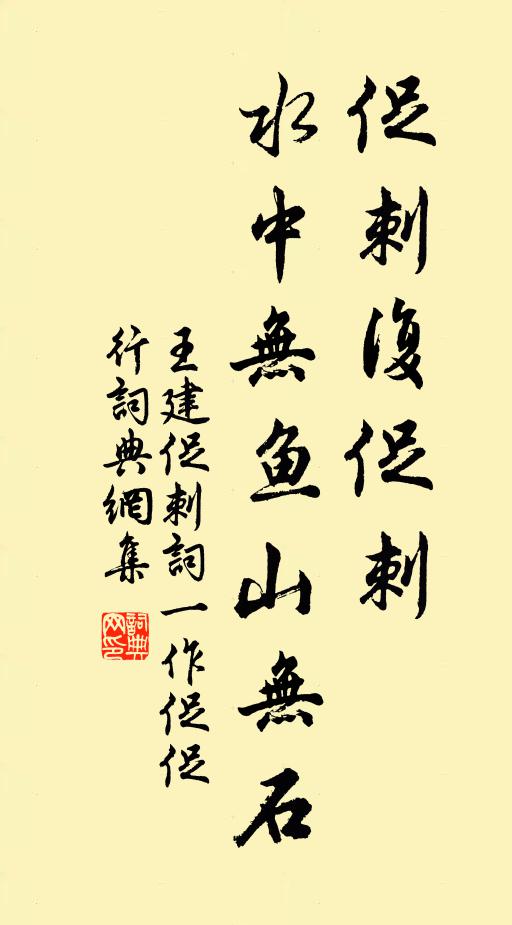 促刺復促刺
水中無魚山無石
王建促刺詞一作促促
行詞典網集
詞典网印